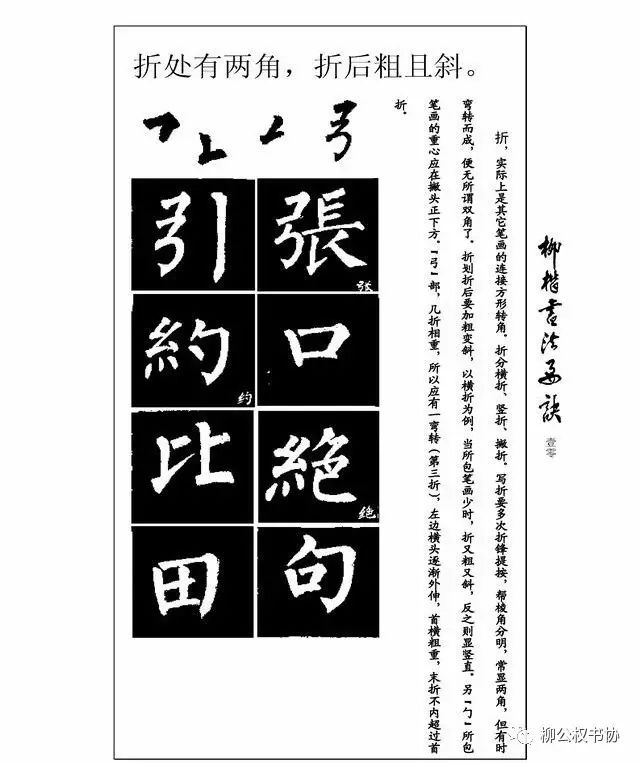 折处有两角，折后粗且斜。
柳楷書法要訣
壹零
折，实际上是其它笔画的连接方形转角。折分横折、竖折、撇折。写折要多次折锋提按，帮棱角分明，常显两角，但有时
弯转而成，便无所谓双角了。折划折后要加粗变斜，以横折为例，当所包笔画少时，折又粗又斜，反之则显竖直。另『勹』所包
笔画的重心应在撇头正下方。『弓』部，几折相重，所以应有一弯转（第三折），左边横头逐渐外伸，首横粗重，末折不内超过首
折．
張
张
口
絶
绝
句
引
約
约
比
田
柳公权书协